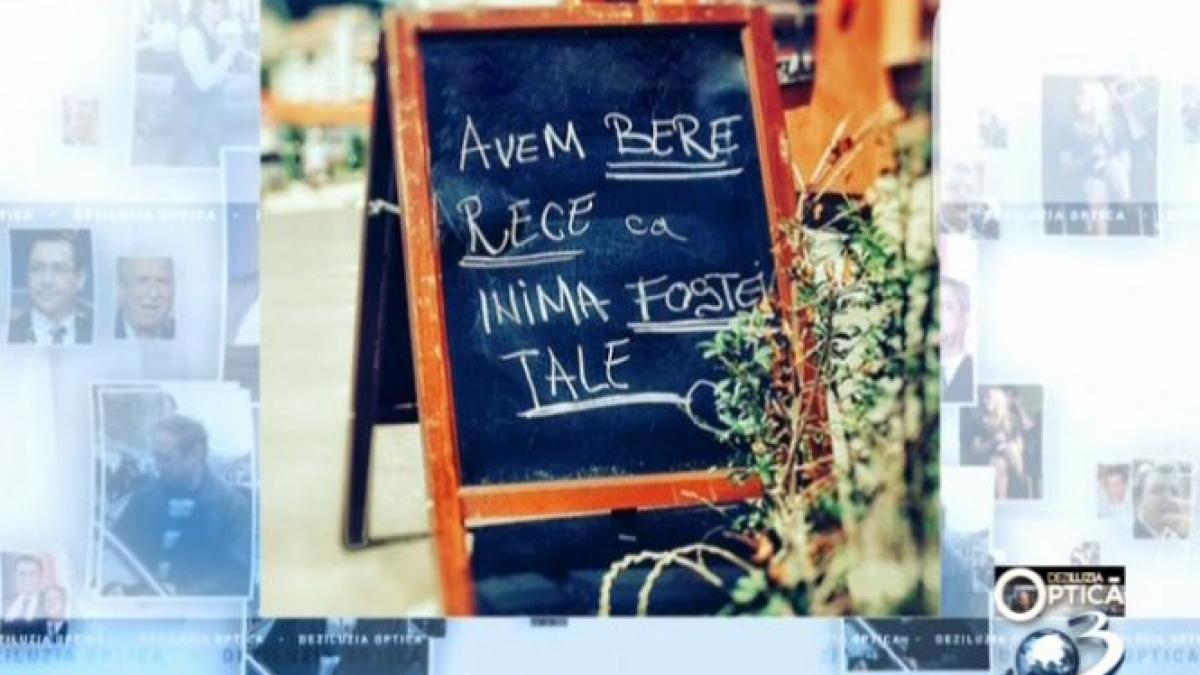 AVEM BERE
RECE ca
INIMA FOSTEI
TALE
DEZILUZIA OPTICA
DEZILUZIA OPTICA
DEZILUZIA
OPTICĂ
3
DEZILUZIA OPTICA
DEZILUZIA OPTICA